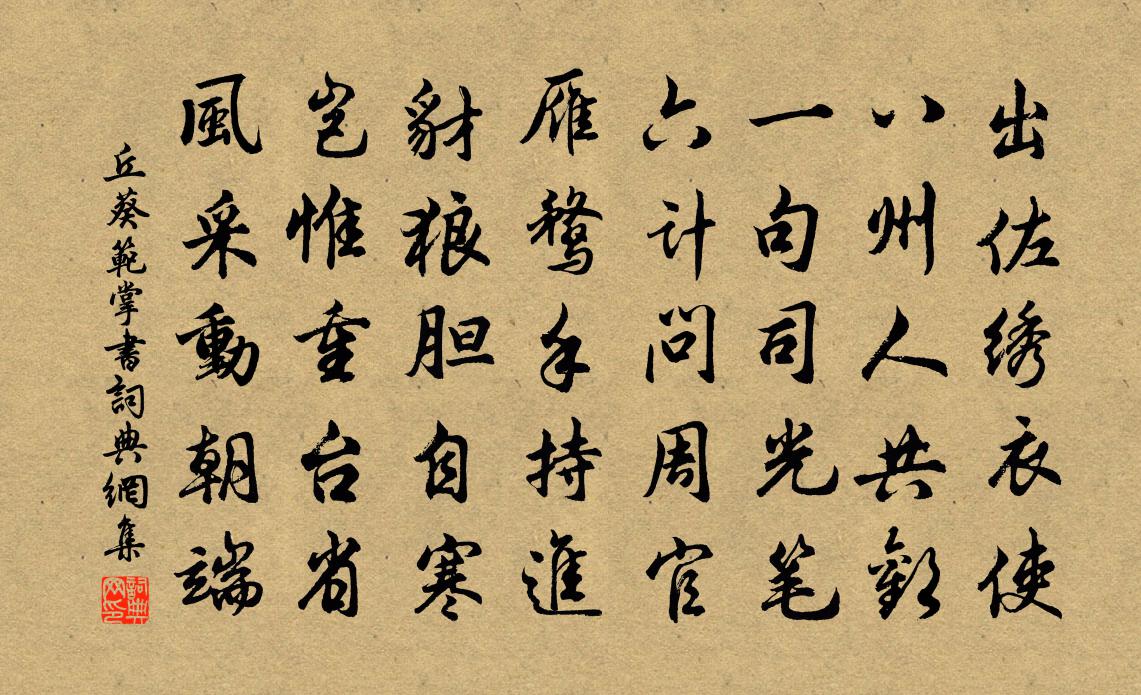 出佐绣衣使
八州人共歡
一句司光笔
六计問周官
雁鶩手持進
豺狼胆自寒
岂惟重台省
風采動朝端
丘葵範掌書詞典網集
詞典网印